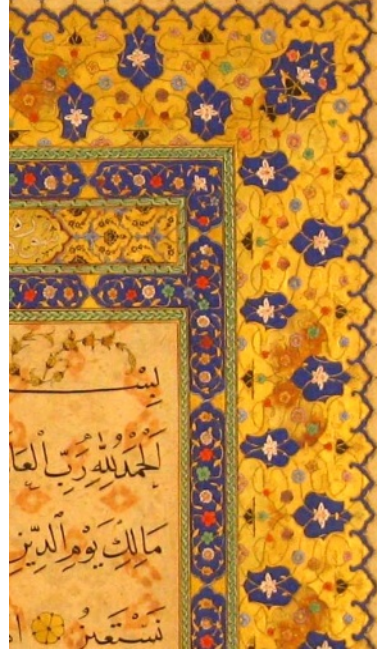 بِسْـ
اَلْحَمْدُ لِلّٰهِ رَبِّ الْعَا
مَالِكِ يَوْمِ الدِّينِ
نَسْتَعِينُ